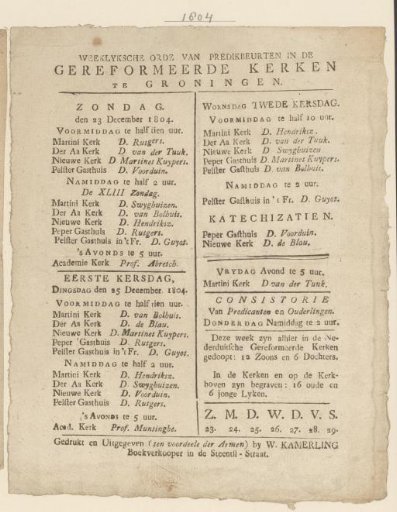 1804
WEEKLYKSCHE ORDE VAN PREDIKBEURTEN IN DE
GEREFORMEERDE KERKEN
TE GRONINGEN.
ZONDAG,
den 23 December 1804.
VOORMIDDAG te half tien uur.
Martini Kerk D. Rutgers.
Der Aa Kerk D. van der Tuuk.
Nieuwe Kerk D. Martinet Kuypers.
Pelster Gasthuis D. Voorduin.
NAMIDDAG te half 2 uur.
De XLIII Zondag.
Martini Kerk D. Swyghuizen.
Der Aa Kerk D. van Bolhuis.
Nieuwe Kerk D. Hendriksz.
Peper Gasthuis D. Rutgers.
Pelster Gasthuis in 't Fr. D. Guyot.
's AVONDS te 5 uur.
Academie Kerk Prof. Abresch.
EERSTE KERSDAG,
DINGSDAG den 25 December 1804.
VOORMIDDAG te half tien uur.
Martini Kerk D. van Bolhuis.
Der Aa Kerk D. de Blau.
Nieuwe Kerk D. Martinet Kuypers.
Peper Gasthuis D. Rutgers.
Pelster Gasthuis in 't Fr. D. Guyot.
NAMIDDAG te half 2 uur.
Martini Kerk D. Hendriksz.
Der Aa Kerk D. Swyghuizen.
Nieuwe Kerk D. Voorduin.
Pelster Gasthuis D. Rutgers.
's AVONDS te 5 uur.
Acad. Kerk Prof. Muntinghe.
WOENSDAG TWEDE KERSDAG.
VOORMIDDAG te half 10 uur.
Martini Kerk D. Hendriksz.
Der Aa Kerk D. van der Tuuk.
Nieuwe Kerk D. Swyghuizen.
Peper Gasthuis D. Martinet Kuypers.
Pelster Gasthuis D. van Bolhuis.
NAMIDDAG te 2 uur.
Pelster Gasthuis in 't Fr. D. Guyot.
KATECHIZATIEN.
Peper Gasthuis D. Voorduin.
Nieuwe Kerk D. de Blau.
VRYDAG Avond te 5 uur.
Martini Kerk D. van der Tuuk.
CONSISTORIE
Van Predicanten en Ouderlingen.
DONDERDAG Namiddag te 2 uur.
Deze week zyn alhier in de Ne-
derduitsche Gereformeerde Kerken
gedoopt: 12 Zoons en 6 Dochters.
In de Kerken en op de Kerk-
hoven zyn begraven: 16 oude en
6 jonge Lyken.
Z. M. D. W. D. V. S.
23. 24. 25. 26. 27. 28. 29.
Gedrukt en Uitgegeven (ten voordeele der Armen) by W. KAMERLING
Boekverkooper in de Steentil-Straat.